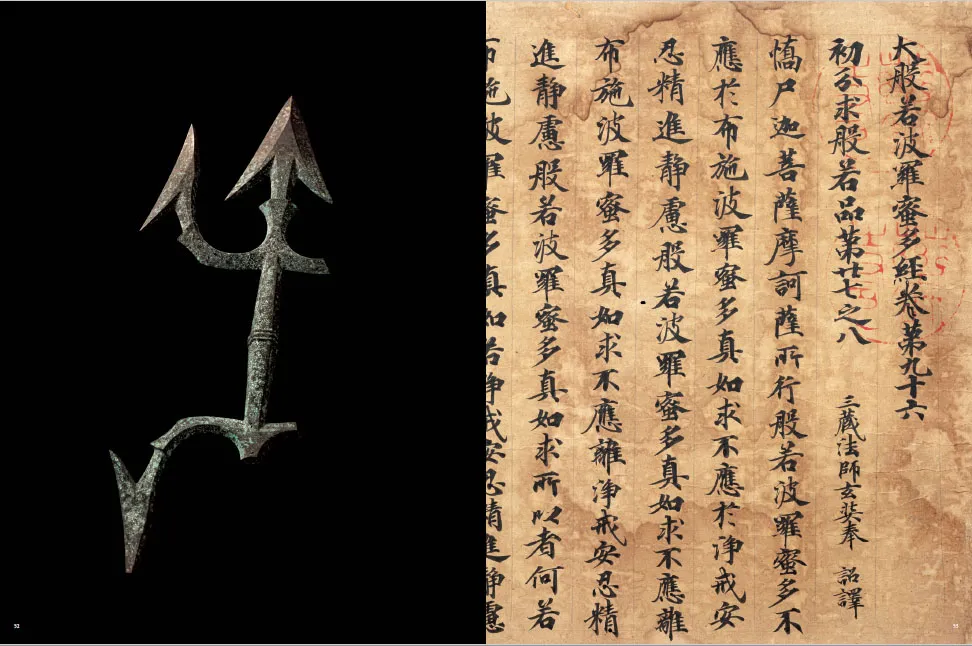 大般若波羅蜜多經卷第九十六
初分求般若品第廿七之八 三藏法師玄奘奉 詔譯
憍尸迦菩薩摩訶薩所行般若波羅蜜多不
應於布施波羅蜜多真如求不應於淨戒安
忍精進靜慮般若波羅蜜多真如求不應離
布施波羅蜜多真如求不應離淨戒安忍精
進靜慮般若波羅蜜多真如求所以者何若
布施波羅蜜多真如若淨戒安忍精進靜慮
52
53